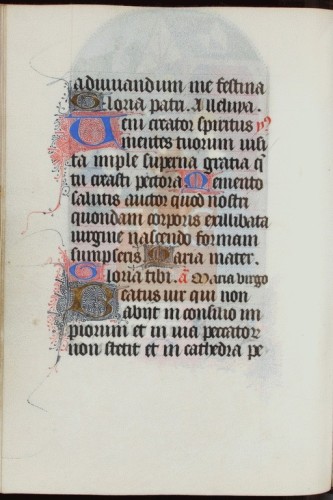 adiuuandum me festina
Gloria patri. Alleluya.
Ueni creator spiritus yp̄s
mentes tuorum uisi
ta imple superna gratia q̄
tu creasti pectora Memento
salutis auctor quod nostri
quondam corporis exillibata
uirgine nascendo formam
sumpseris Maria mater.
Gloria tibi. a̅ Maria virgo
Beatus uir qui non
abijt in consilio im
piorum et in uia peccator
non stetit et in cathedra pe